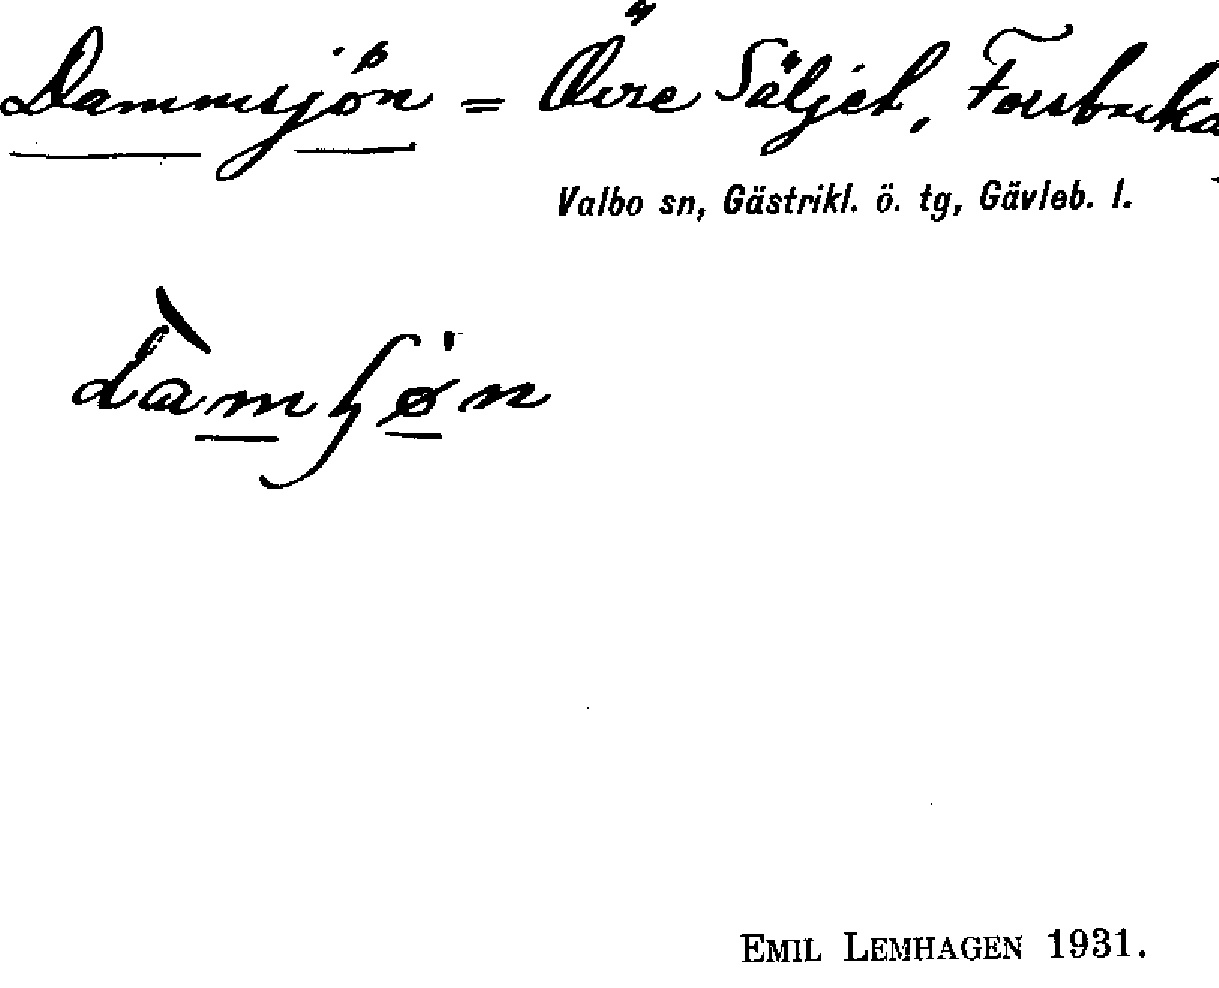 Dammsjön = Övre Säljet, Forsbacka
Valbo sn, Gästrikl. ö. tg, Gävleb. l.
EMIL LEMHAGEN 1931.